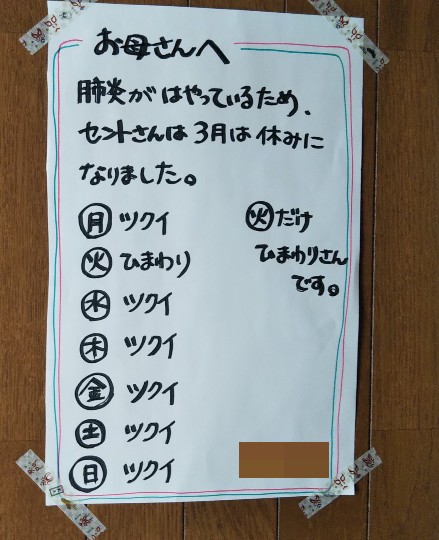 お母さんへ
肺炎がはやっているため、
セントさんは3月は休みに
なりました。
月 ツクイ
火 ひまわり
水 ツクイ
木 ツクイ
金 ツクイ
土 ツクイ
日 ツクイ
火だけ
ひまわりさん
です。